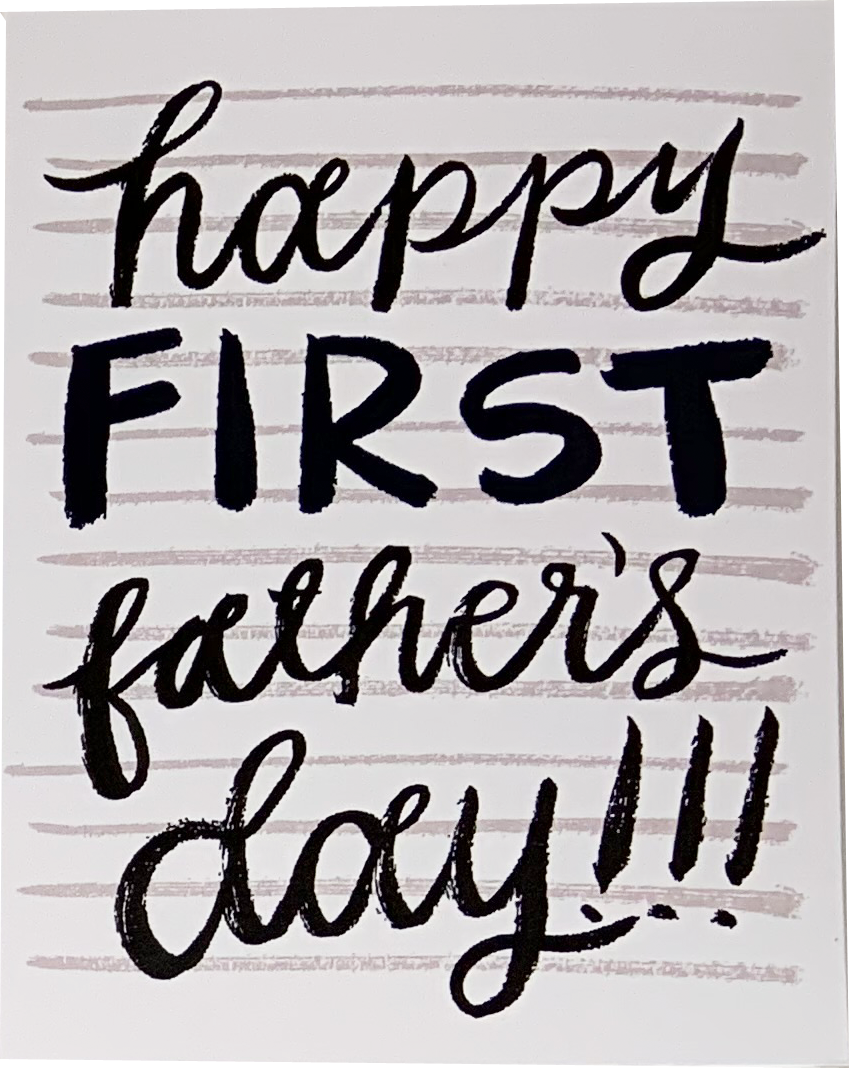 happy
FIRST
father's
day!!!